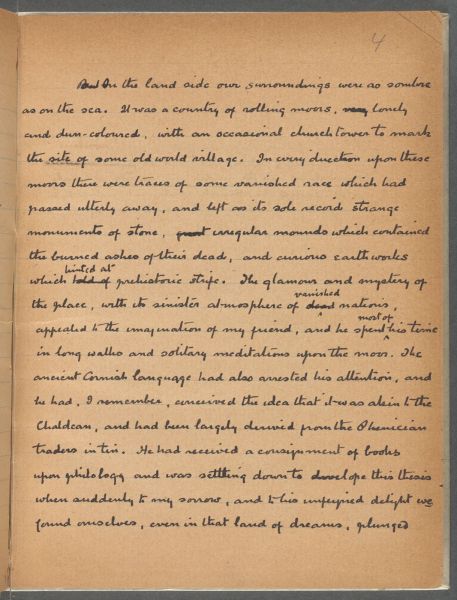 4
But On the land side our surroundings were as sombre
as on the sea. It was a country of rolling moors, very lonely
and dun-coloured, with an occasional church tower to mark
the site of some old world village. In every direction upon these
moors there were traces of some vanished race which had
passed utterly away, and left as its sole record strange
monuments of stone, great irregular mounds which contained
the burned ashes of their dead, and curious earthworks
hinted at
which told of prehistoric strife. The glamour and mystery of
vanished
the place, with its sinister atmosphere of dead nations,
most of
appealed to the imagination of my friend, and he spent his time
in long walks and solitary meditations upon the moor. The
ancient Cornish language had also arrested his attention, and
he had, I remember, conceived the idea that it was akin to the
Chaldean, and had been largely derived from the Phoenician
traders in tin. He had received a consignment of books
upon philology and was settling down to develope this thesis
when suddenly to my sorrow, and to his unfeigned delight we
found ourselves, even in that land of dreams, plunged